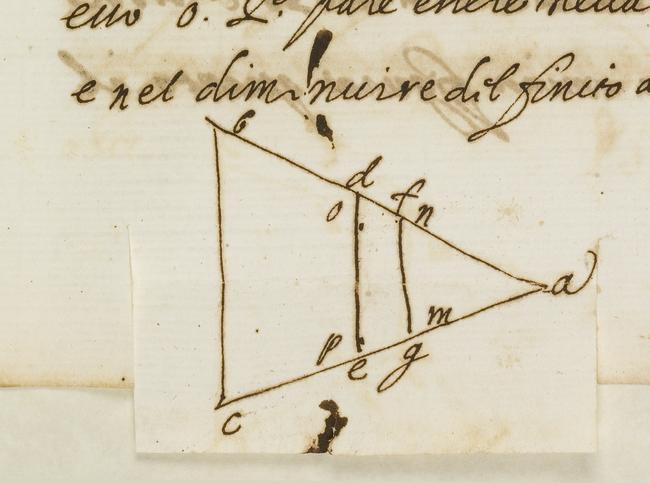 o. pare essere nella
e nel diminuire dil finito a
b
d
o f n
a
p m
e g
c